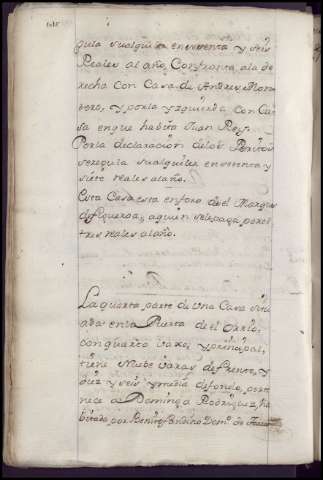 gula sualquiler en sesenta y seis
Reales al año, Confronta ala de
recha con Casa de Andres Mon
tero, y porla yzquierda con Ca
sa enque habita Juan Rey.
Porla declaracion delos Peritos
seregula sualquiler en setenta y
siete reales alaño.
Esta Casa esta enforo de el Marques
de figueroa, aquien selepaga por el
tres reales alaño.
La quarta parte de Una Casa Situ
ada enla Puerta de el
con quarto vaxo, y principal,
tiene Nueve varas de frente, y
diez y seis y media defondo, perte
nece a Dominga Rodriguez, ha
bitada por Benito